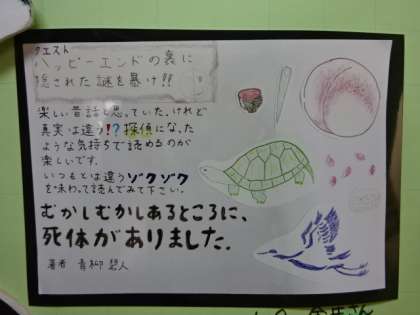 クエスト
ハッピーエンドの裏に
隠された謎を暴け!!
楽しい昔話と思っていた。けれど
真実は違う!?探偵になった
ような気持ちで読めるのが
楽しいです。
いつもとは違うゾクゾク
を味わって読んでみて下さい。
むかしむかしあるところに、
死体がありました。
著者 青柳 碧人